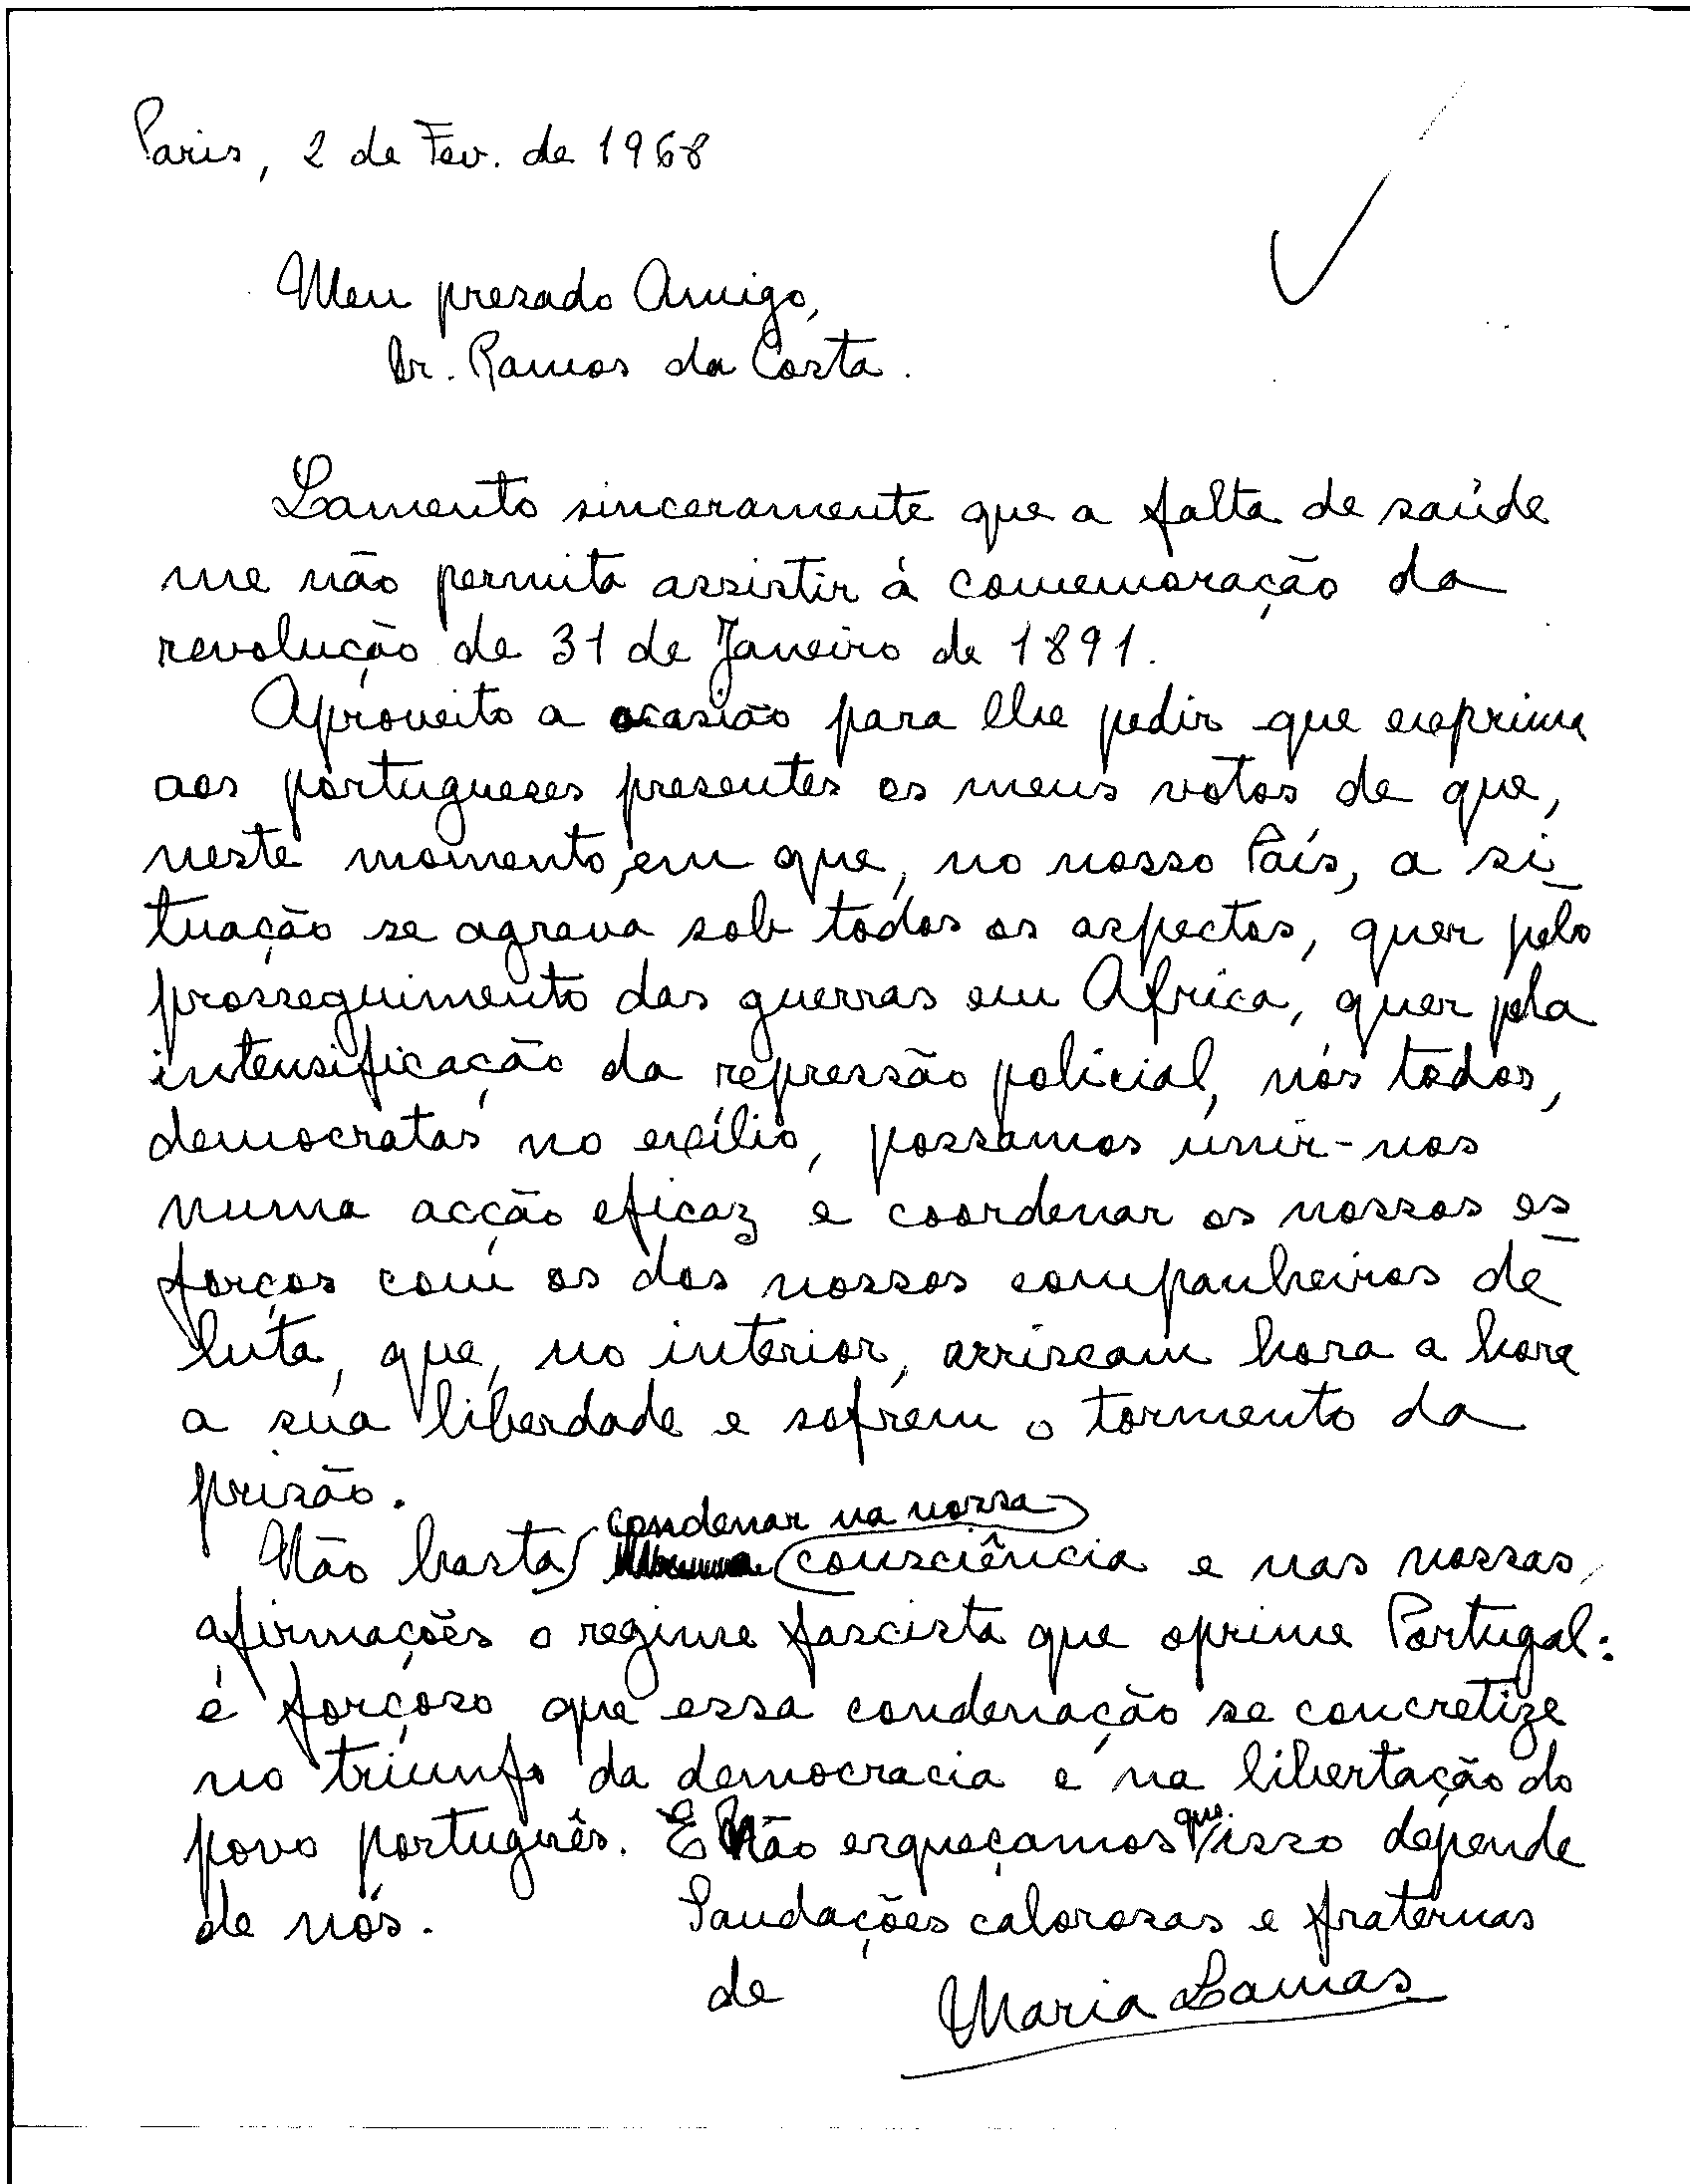 Paris, 2 de Fev. de 1968
Meu prezado Amigo,
Dr. Ramos da Costa.
Lamento sinceramente que a falta de saúde
me não permita assistir à comemoração da
revolução de 31 de Janeiro de 1891.
Aproveito a ocasião para lhe pedir que exprima
aos portugueses presentes os meus votos de que,
neste momento, em que, no nosso País, a si
tuação se agrava sob todos os aspectos, quer pelo
prosseguimento das guerras em Africa, quer pela
intensificação da repressão policial, nós todos,
democratas no exílio, possamos unir-nos
numa acção eficaz e coordenar os nossos es
forços com os dos nossos companheiros de
luta, que, no interior, arriscam hora a hora
a sua liberdade e sofrem o tormento da
prisão.
condenar na nossa
Não basta consciência e nas nossas
afirmações o regime fascista que oprime Portugal:
é forçoso que essa condenação se concretize
no triunfo da democracia e na libertação do
povo português. E Não esqueçamos que isso depende
de nós. Saudações calorosas e fraternas
de Maria Lamas